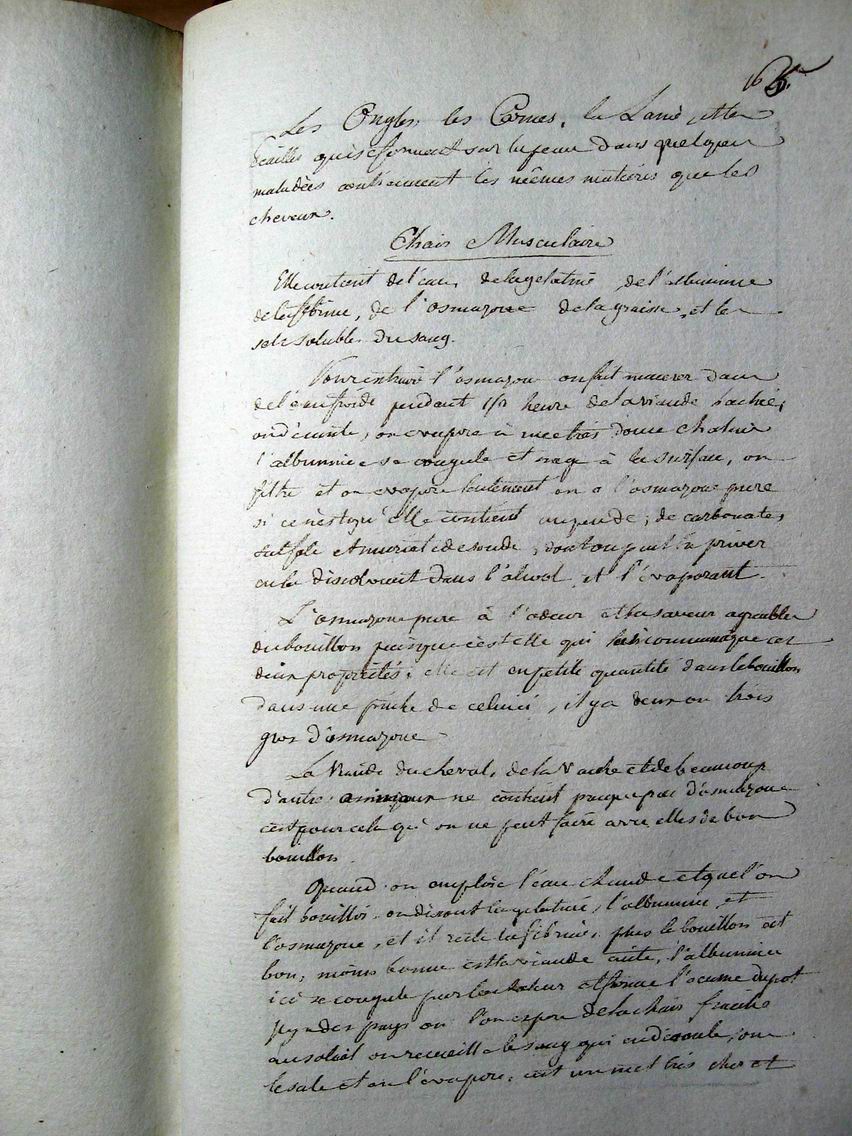 165.
Les Ongles, les Cornes, la Laine, et les
Ecailles qui se forment sur la peau dans quelques
maladies contiennent les mêmes matières que les
cheveux.
Chair Musculaire
Elle contient de l'eau, de la gelatine, de l'albumine
de la fibrine, de l'osmazome de la graisse, et les
sels solubles du sang.
Pour extraire l'osmazome on fait macerer dans
de l'eau froide pendant 1/2 heure de la viande hachée,
on décante, on evapore à une très douce chaleur
l'albumine se coagule et nage à la surface, on
filtre et on evapore lentement on a l'osmazome pure
si ce n'est qu'elle contient un peu de, de carbonate,
sulfate et muriate de soude, dont on peut la priver
en la dissolvant dans l'alcool et l'évaporant.
L'osmazome pure à l'odeur et la saveur agreables
du bouillon puisque c'est elle qui lui communique ces
deux propriétés; elle est en petite quantité dans le bouillon
dans une pinte de celui ci, il y a deux ou trois
gros d'osmazome
La Viande du cheval, de la Vache et de beaucoup
d'autres animaux ne contient presque pas d'osmazome
c'est pour cela qu'on ne peut faire avec elles de bon
bouillon.
Quand on emploie l'eau chaude et que l'on
fait bouillir, on dissout la gelatine, l'albumine, et
l'osmazome, et il reste la fibrine. plus le bouillon est
bon, moins bonne est la viande cuite, l'albumine
ici se coagule par la chaleur et forme l'ecume du pot
il y a des pays ou l'on expose de la chair fraiche
au soleil on recueille le sang qui en découle, on
le sale et on l'évapore; c'est un met très cher et